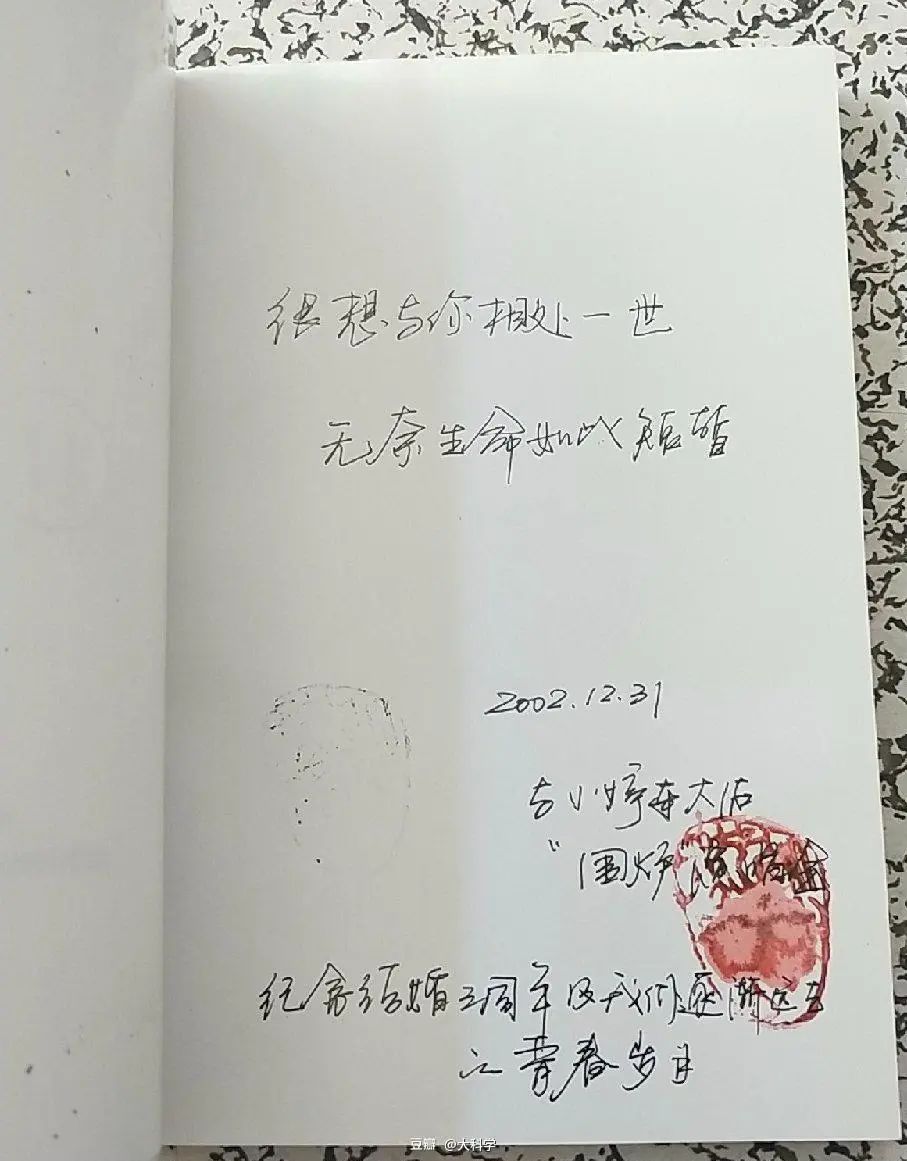 很想与你相处一世
无奈生命如此短暂
2002.12.31
与小婷在大佑
"围炉"演唱会
纪念结婚三周年及我们逐渐远去
之青春岁月
豆瓣 @大科学